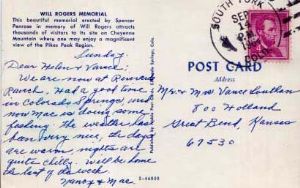 WILL ROGERS MEMORIAL
This beautiful memorial erected by Spencer
Penrose in memory of Will Rogers attracts
thousands of visitors to its site on Cheyenne
Mountain where one may enjoy a magnificent
view of the Pikes Peak Region.
Sunday
Dear Helen & Vance:
We are now at
Ranch. Had a good time
in Colorado Springs, and
now Mac is doing some
fishing. The weather has
been very nice, the days
are warm nights are
quite chilly. Will be home
the last of the week
Nancy & Mac
SOUTH FORK
SEP
PM
POST CARD
Address
Mr & Mrs Vance Southan
800 Holland
Great Bend, Kansas
67530